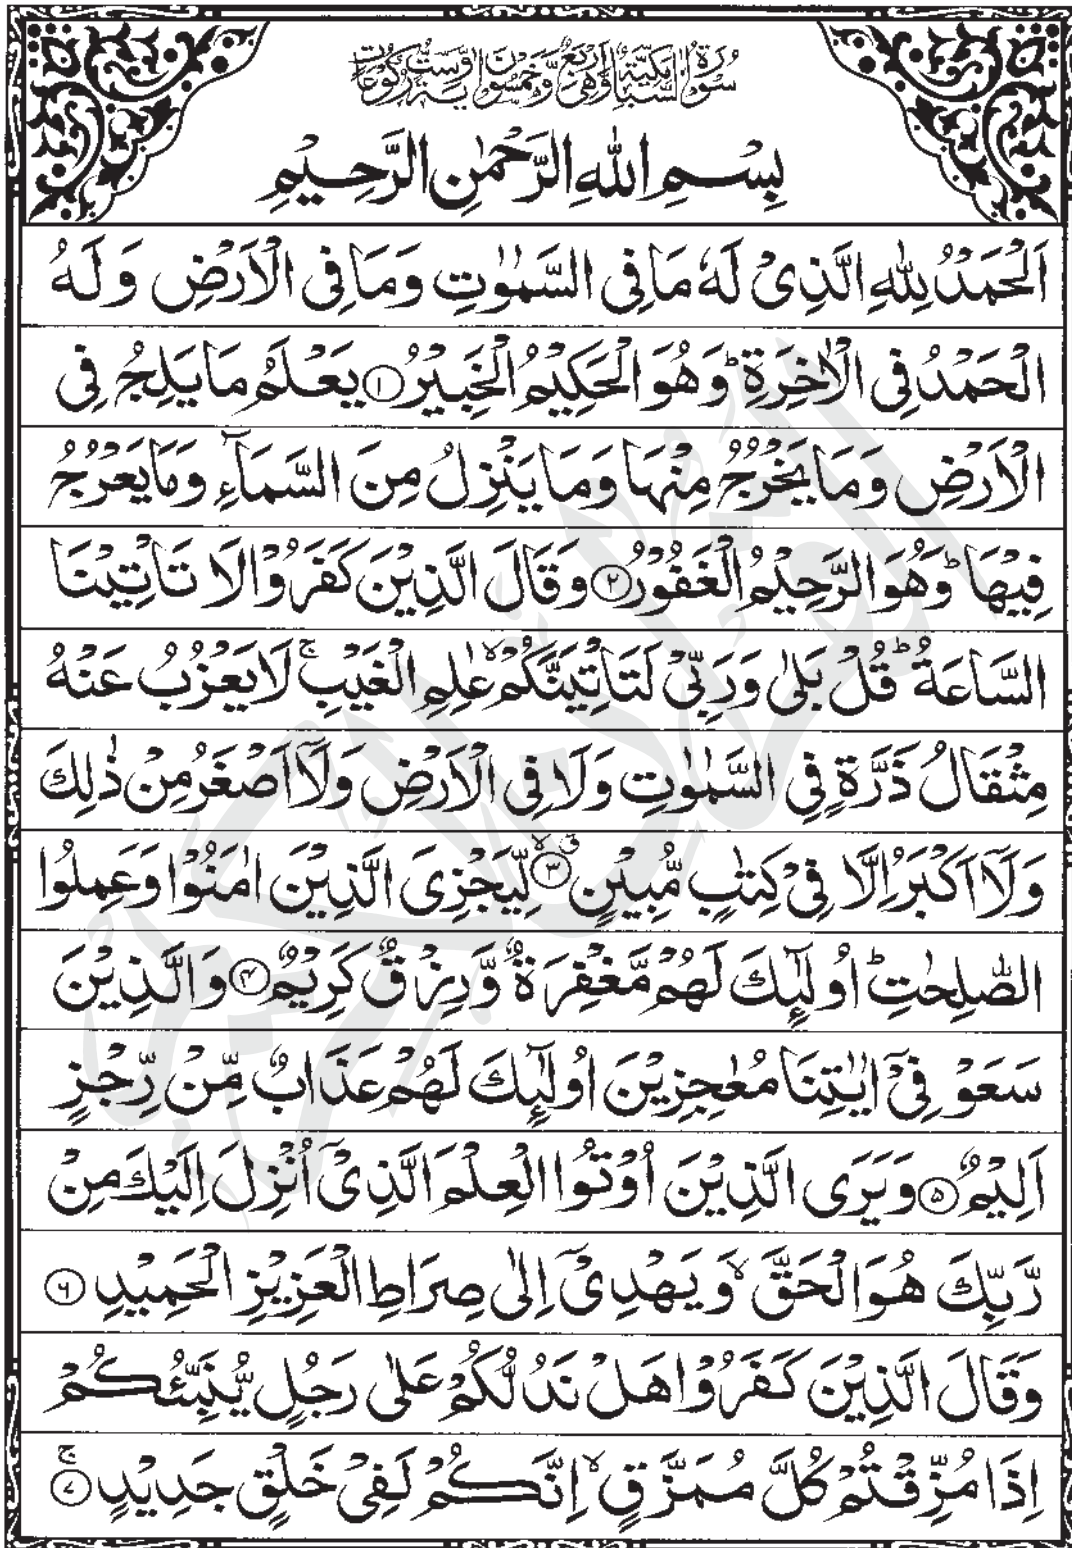 سُوْرَةُ السَّبَاِ مَكِّيَّةٌ وَّهِىَ اَرْبَعٌ وَّخَمْسُوْنَ اٰيَةً وَّسِتُّ رُكُوْعَاتٍ
بِسْمِ اللّٰهِ الرَّحْمٰنِ الرَّحِيْمِ
اَلْحَمْدُ لِلّٰهِ الَّذِىْ لَهٗ مَا فِى السَّمٰوٰتِ وَمَا فِى الْاَرْضِ وَلَهُ
الْحَمْدُ فِى الْاٰخِرَةِ ؕ وَهُوَ الْحَكِيْمُ الْخَبِيْرُ ۝۱ يَعْلَمُ مَا يَلِجُ فِى
الْاَرْضِ وَمَا يَخْرُجُ مِنْهَا وَمَا يَنْزِلُ مِنَ السَّمَآءِ وَمَا يَعْرُجُ
فِيْهَا ؕ وَهُوَ الرَّحِيْمُ الْغَفُوْرُ ۝۲ وَقَالَ الَّذِيْنَ كَفَرُوْا لَا تَاْتِيْنَا
السَّاعَةُ ؕ قُلْ بَلٰى وَرَبِّىْ لَتَاْتِيَنَّكُمْ ۙ عٰلِمِ الْغَيْبِ ۚ لَا يَعْزُبُ عَنْهُ
مِثْقَالُ ذَرَّةٍ فِى السَّمٰوٰتِ وَلَا فِى الْاَرْضِ وَلَاۤ اَصْغَرُ مِنْ ذٰلِكَ
وَلَاۤ اَكْبَرُ اِلَّا فِىْ كِتٰبٍ مُّبِيْنٍ ۝۳ ۙق لِّيَجْزِىَ الَّذِيْنَ اٰمَنُوْا وَعَمِلُوا
الصّٰلِحٰتِ ؕ اُولٰٓئِكَ لَهُمْ مَّغْفِرَةٌ وَّرِزْقٌ كَرِيْمٌ ۝۴ وَالَّذِيْنَ
سَعَوْ فِىْۤ اٰيٰتِنَا مُعٰجِزِيْنَ اُولٰٓئِكَ لَهُمْ عَذَابٌ مِّنْ رِّجْزٍ
اَلِيْمٌ ۝۵ وَيَرَى الَّذِيْنَ اُوْتُوا الْعِلْمَ الَّذِىْۤ اُنْزِلَ اِلَيْكَ مِنْ
رَّبِّكَ هُوَ الْحَقَّ ۙ وَيَهْدِىْۤ اِلٰى صِرَاطِ الْعَزِيْزِ الْحَمِيْدِ ۝۶
وَقَالَ الَّذِيْنَ كَفَرُوْا هَلْ نَدُلُّكُمْ عَلٰى رَجُلٍ يُّنَبِّئُكُمْ
اِذَا مُزِّقْتُمْ كُلَّ مُمَزَّقٍ ۙ اِنَّكُمْ لَفِىْ خَلْقٍ جَدِيْدٍ ۝۷ ۚ